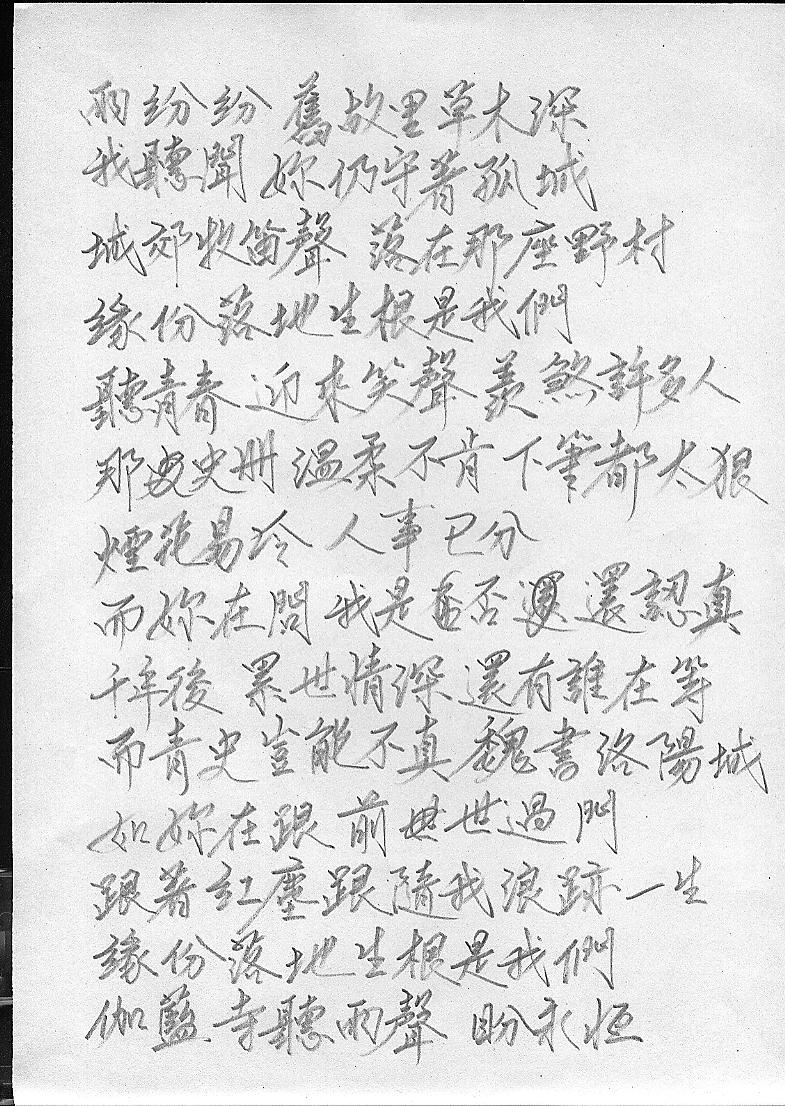 雨紛紛 舊故里草木深
我聽聞 妳仍守著孤城
城郊牧笛聲 落在那座野村
緣份落地生根是我們
聽青春 迎來笑聲 羨煞許多人
那史冊 溫柔不肯 下筆都太狠
煙花易冷 人事已分
而妳在問 我是否還 還認真
千年後 累世情深 還有誰在等
而青史 豈能不真 魏書洛陽城
如妳在跟 前世過門
跟著紅塵跟隨我浪跡一生
緣份落地生根是我們
伽藍寺聽雨聲 盼永恒